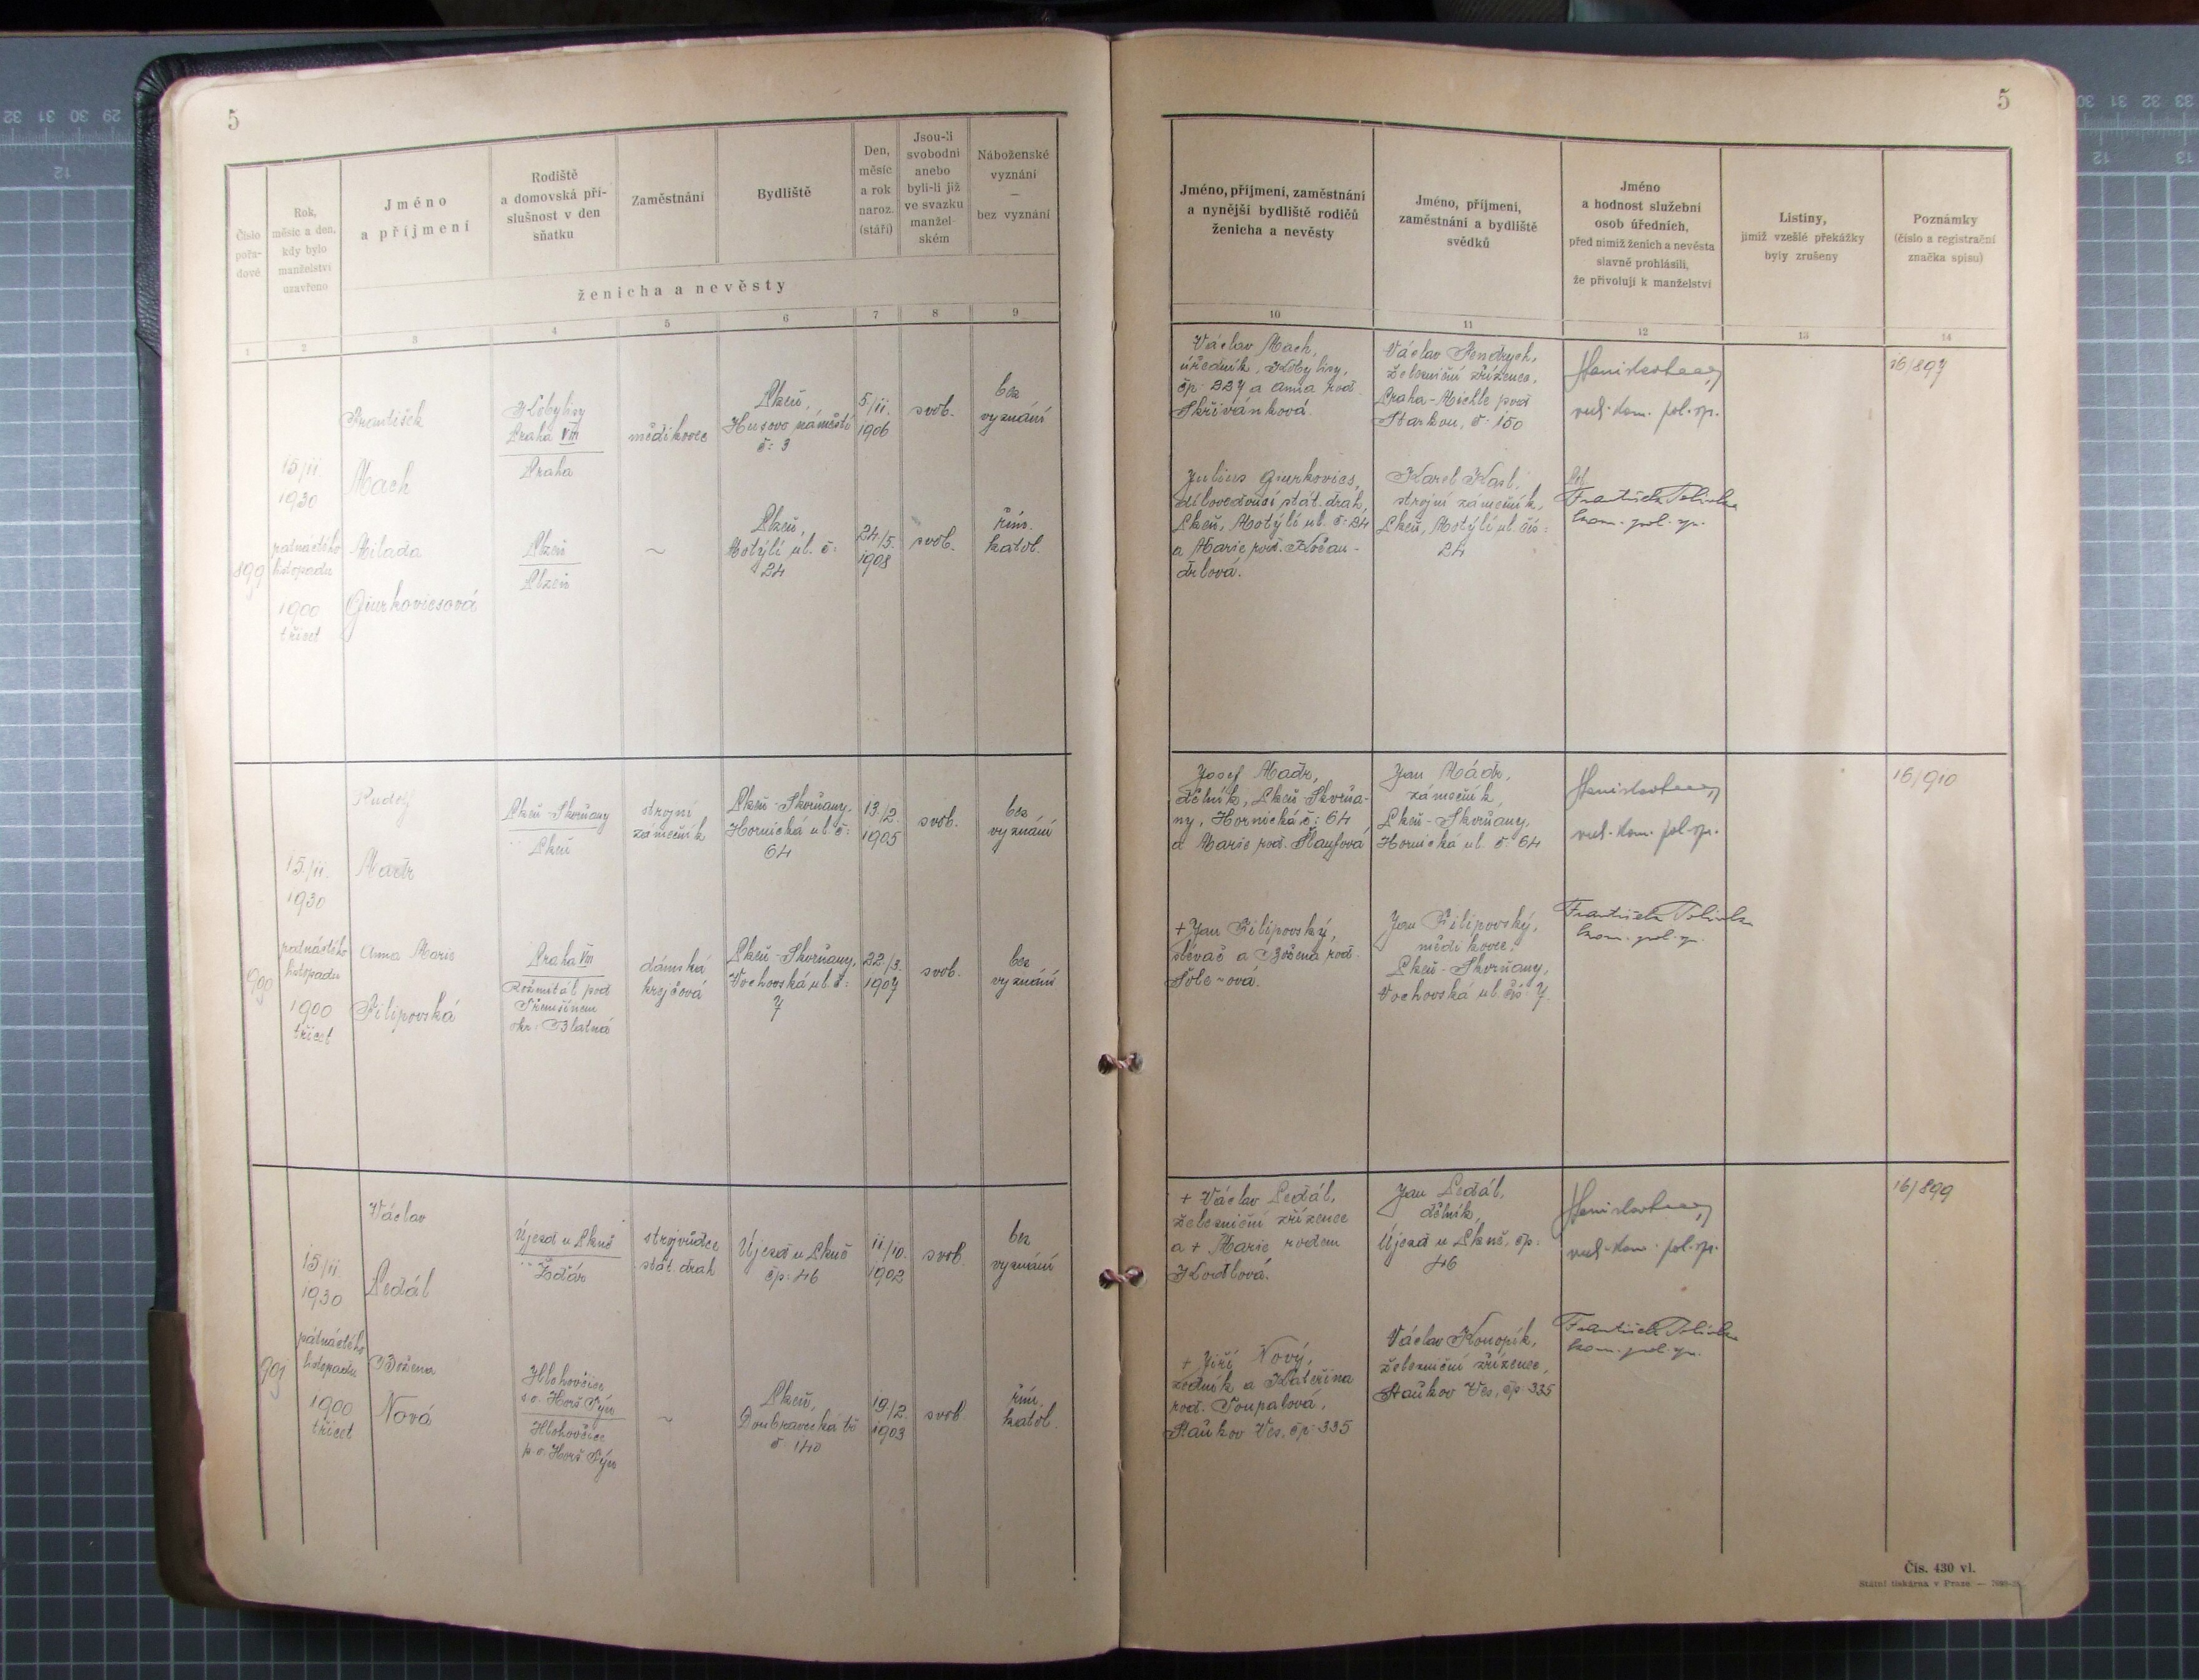 5
5
Číslo
pořa-
dové
Rok,
měsíc a den,
kdy bylo
manželství
uzavřeno
Jméno
a příjmení
Rodiště
a domovská pří-
slušnost v den
sňatku
Zaměstnání
Bydliště
Den,
měsíc
a rok
naroz.
(stáří)
Jsou-li
svobodni
anebo
byli-li již
ve svazku
manžel-
ském
Náboženské
vyznání
—
bez vyznání
ženicha a nevěsty
1 2 3 4 5 6 7 8 9
Jméno, příjmení, zaměstnání
a nynější bydliště rodičů
ženicha a nevěsty
Jméno, příjmení,
zaměstnání a bydliště
svědků
Jméno
a hodnost služební
osob úředních,
před nimiž ženich a nevěsta
slavně prohlásili,
že přivolují k manželství
Listiny,
jimiž vzešlé překážky
byly zrušeny
Poznámky
(číslo a registrační
značka spisu)
10 11 12 13 14
899
15/11.
1930
patnáctého
listopadu
1900
třicet
František
Mach
Kobylisy
Praha VIII
Praha
mědikovec
Plzeň,
Husovo náměstí
č: 3
5/11.
1906
svob.
bez
vyznání
Milada
Giurkovicsová
Plzeň
Plzeň
~
Plzeň,
Motýlí ul. č:
24
24/5.
1908
svob.
řím.
katol.
Václav Mach,
úředník, Kobylisy,
čp: 227 a Anna rod.
Skřivánková.
Julius Giurkovics,
dílovedoucí stát. drah,
Plzeň, Motýlí ul. č: 24
a Marie rod. Kočan-
drlová.
Václav Jendrych,
železniční zřízenec,
Praha-Michle pod
Starkou, č: 150
Karel Kasl,
strojní zámečník,
Plzeň, Motýlí ul. čís:
24
vrch. kom. pol. sp.
František
kom. pol. sp.
16/897
900
15/11.
1930
patnáctého
listopadu
1900
třicet
Rudolf
Madr
Plzeň-Skvrňany
Plzeň
strojní
zámečník
Plzeň-Skvrňany,
Hornická ul. č:
64
13/2.
1905
svob.
bez
vyznání
Anna Marie
Filipovská
Praha VIII
Rožmitál pod
Třemšínem
okr: Blatná
dámská
krejčová
Plzeň-Skvrňany,
Vochovská ul. č:
7
22/3.
1907
svob.
bez
vyznání
Josef Madr,
dělník, Plzeň-Skvrňa-
ny, Hornická č: 64
a Marie rod.
+ Jan Filipovský,
slévač a Božena rod.
Jan Mádr,
zámečník,
Plzeň-Skvrňany,
Hornická ul. č: 64
Jan Filipovský,
mědikovec,
Plzeň-Skvrňany,
Vochovská ul. čís: 7.
vrch. kom. pol. sp.
František
kom. pol. sp.
16/910
901
15/11.
1930
patnáctého
listopadu
1900
třicet
Václav
Ledál
Újezd u Plzně
Žďár
strojvůdce
stát. drah
Újezd u Plzně
čp: 46
11/10.
1902
svob.
bez
vyznání
Božena
Nová
Hlohovčice
s.o. Horš. Týn
Hlohovčice
p.o. Horš. Týn
~
Plzeň,
Doubravecká tř.
č: 140
19/2.
1903
svob.
řím.
katol.
+ Václav Ledál,
železniční zřízenec
a + Marie rodem
+ Jiří Nový,
zedník a Kateřina
rod. Toupalová,
Staňkov Ves, čp: 335
Jan Ledál,
dělník,
Újezd u Plzně, čp:
46
Václav Konopík,
železniční zřízenec,
Staňkov Ves, čp: 335
vrch. kom. pol. sp.
František
kom. pol. sp.
16/899
Čís. 430 vl.
Státní tiskárna v Praze —